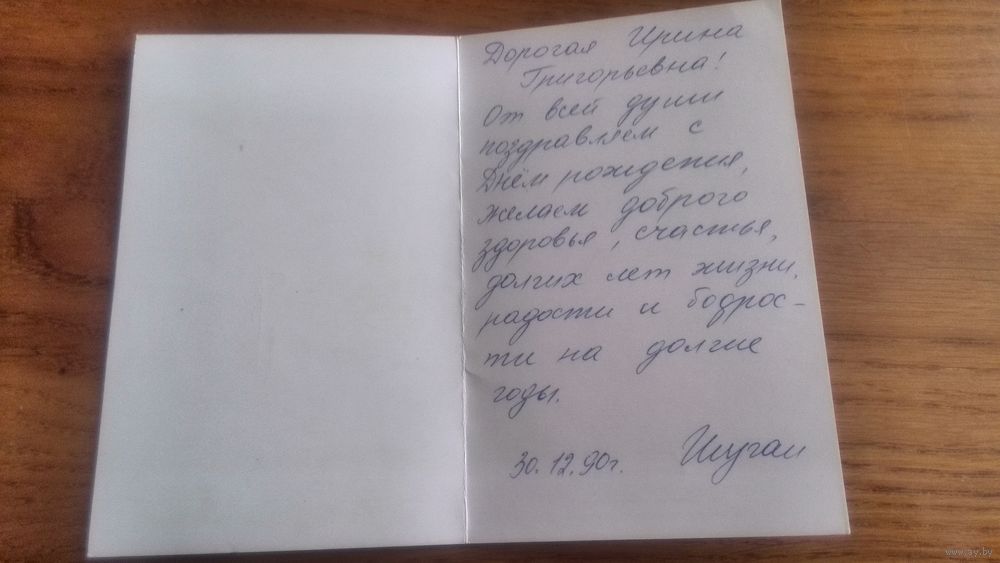 Дорогая Ирина
Григорьевна!
От всей души
поздравляем с
Днём рождения,
желаем доброго
здоровья, счастья,
долгих лет жизни,
радости и бодрос-
ти на долгие
годы.
30.12.90г.
www.ay.by